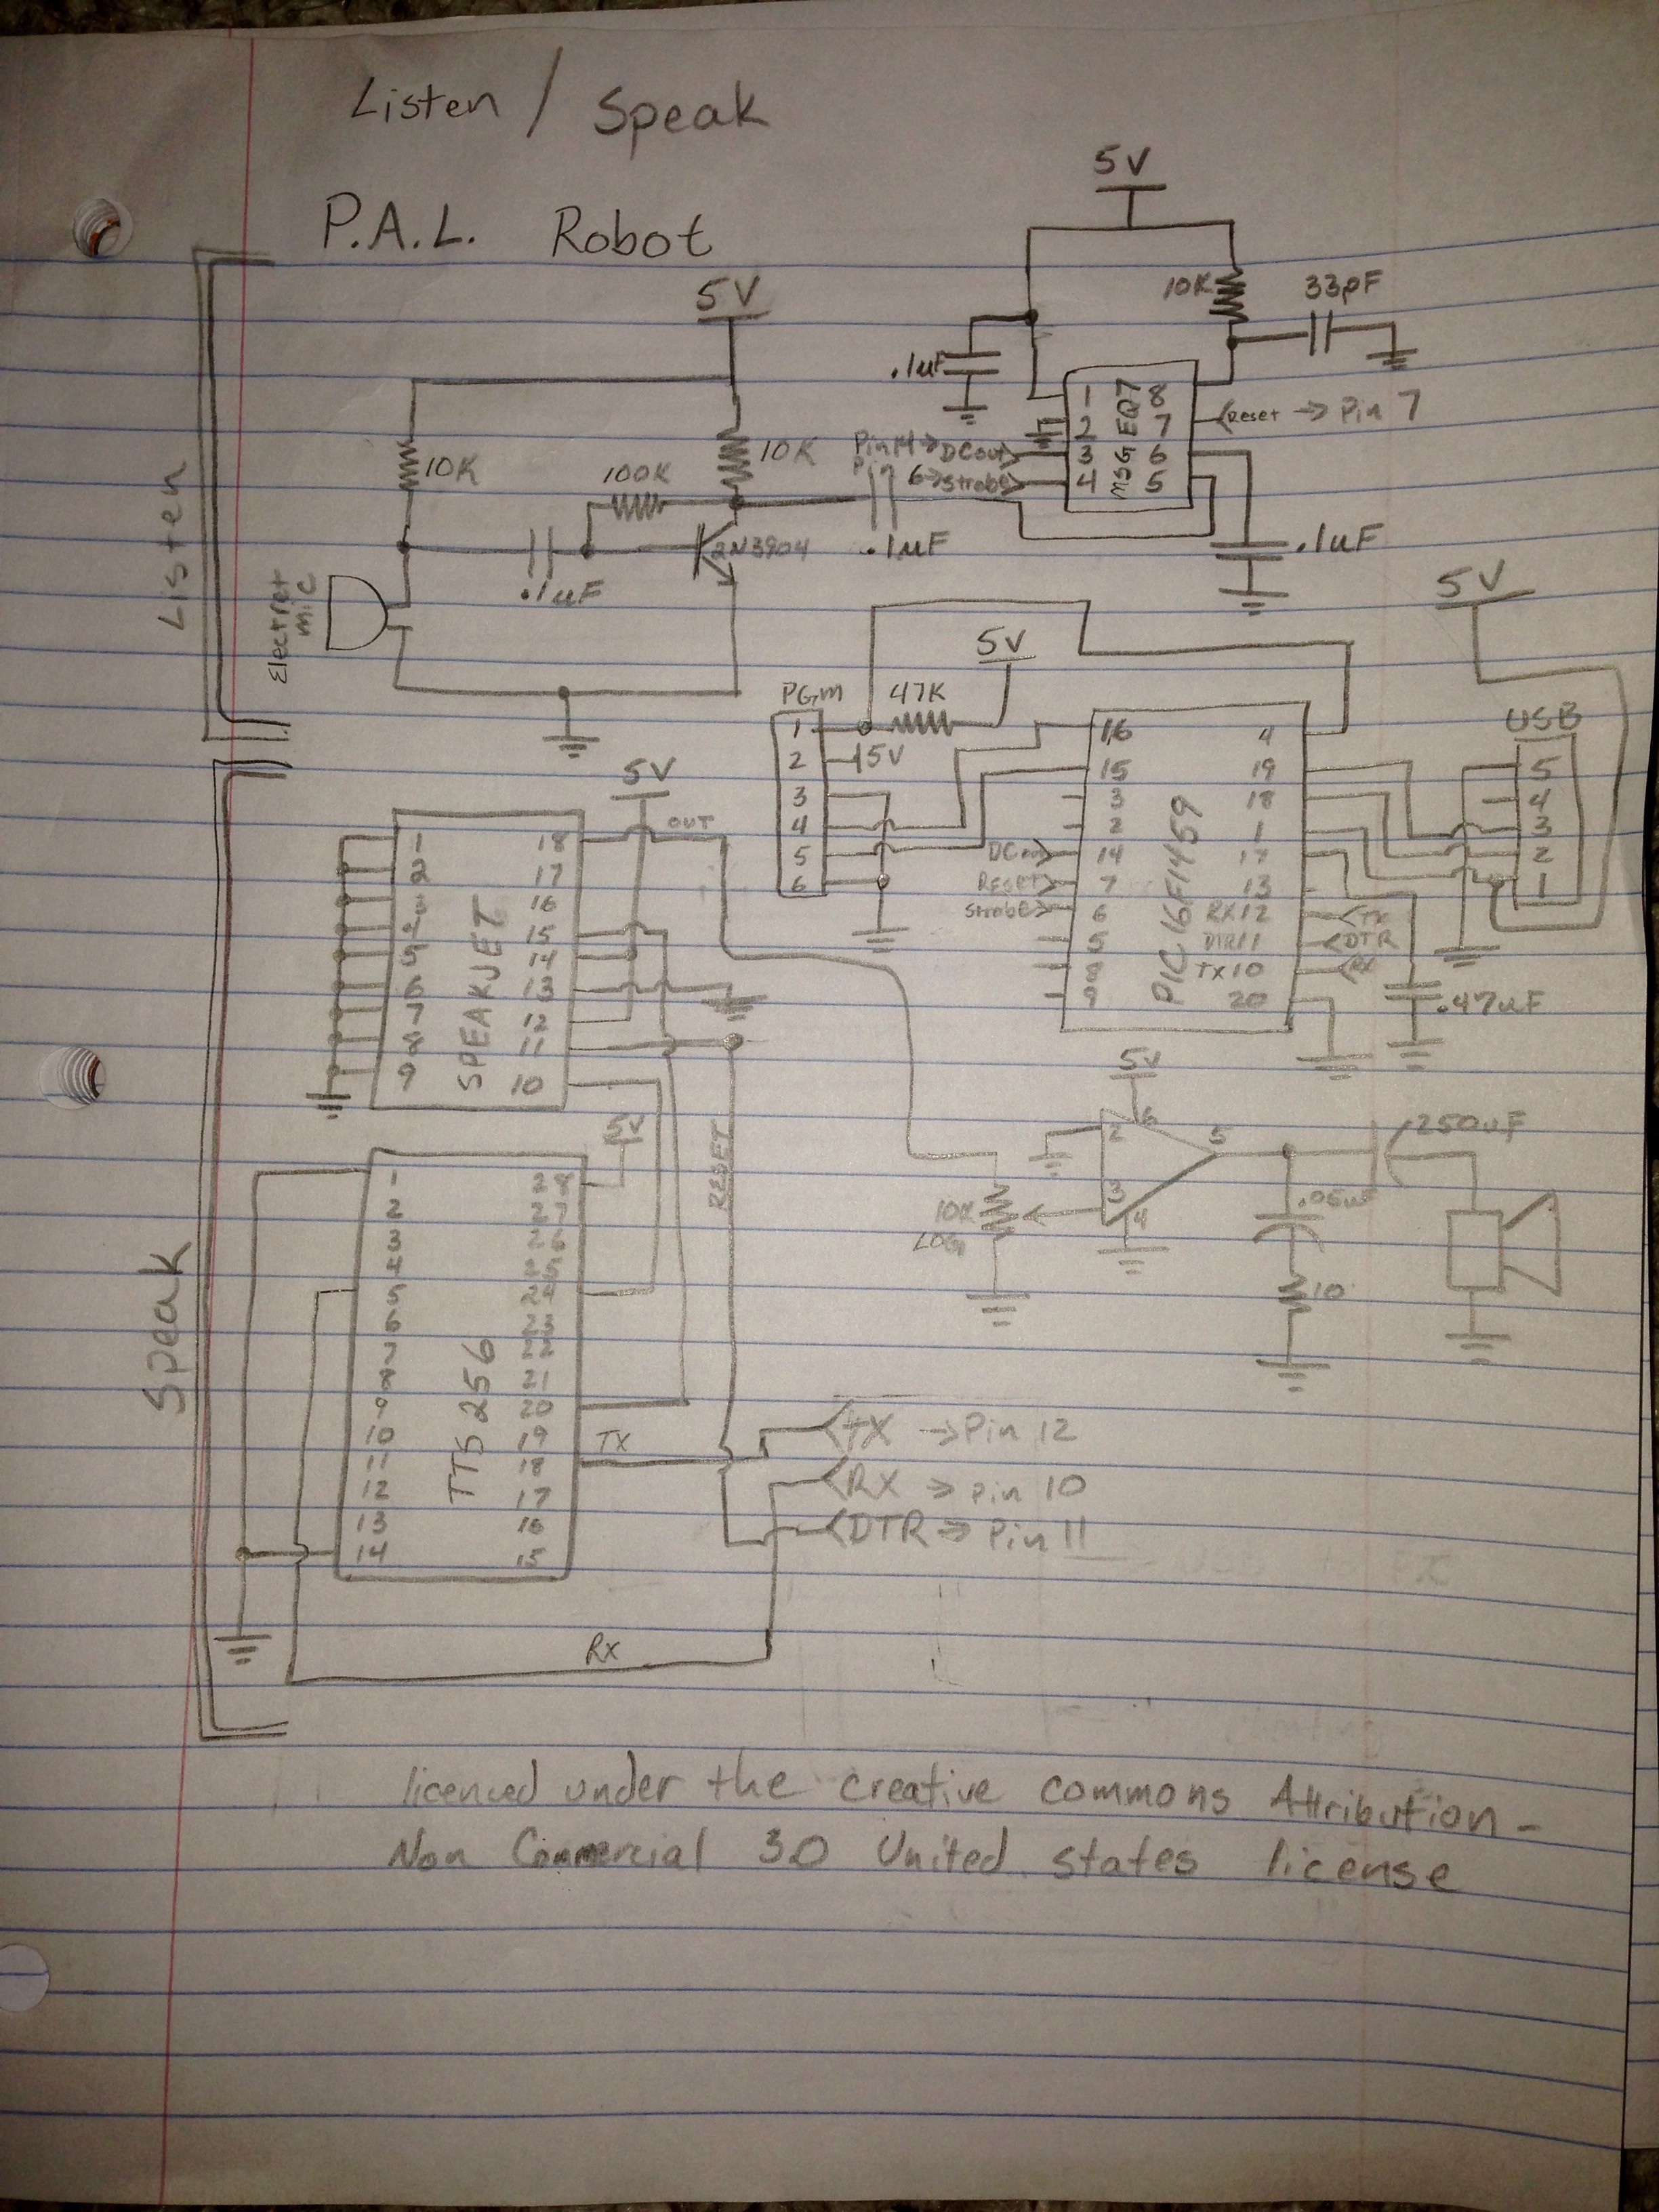 Listen / Speak
P.A.L. Robot
5V
10K
33pF
5V
.1uF
1
8
2
7
3
6
4
5
MSGEQ7
Reset → Pin 7
Pin 14 → DCout
Pin 6 → Strobe
10K
100K
10K
2N3904
.1uF
.1uF
.1uF
Listen
Electret
mic
5V
5V
PGM
47K
1
2
3
4
5
6
5V
16
15
3
2
14
7
6
5
8
9
4
19
18
1
17
13
RX12
DTR11
TX10
20
PIC16F1459
Reset
Strobe
TX
DTR
RX
USB
5
4
3
2
1
.47uF
5V
OUT
1
2
3
4
5
6
7
8
9
18
17
16
15
14
13
12
11
10
SPEAKJET
5V
2
6
5
3
4
10K
LOG
250uF
.05uF
10
5V
RESET
Speak
1
2
3
4
5
6
7
8
9
10
11
12
13
14
28
27
26
25
24
23
22
21
20
19
18
17
16
15
TTS256
TX
TX → Pin 12
RX → pin 10
DTR → Pin 11
RX
licenced under the creative commons Attribution-
Non Commercial 3.0 United states license